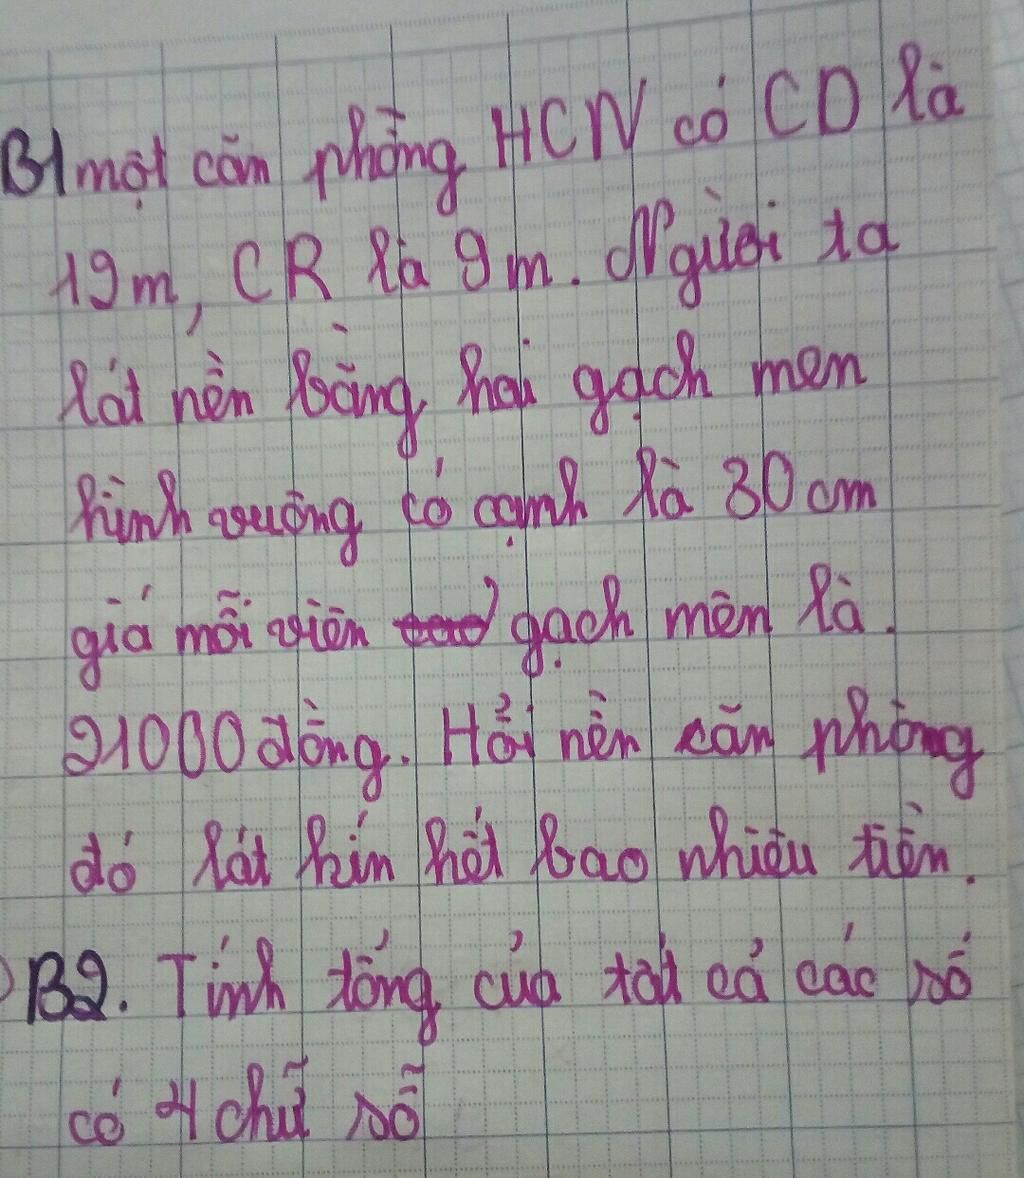 B1 một căn phòng HCN có CD là
19m, CR là 9m. Người ta
lát nền bằng hai gạch men
hình vuông có cạnh là 30cm
giá mỗi viên gạch mên là.
21000 đồng. Hỏi nền căn phòng
đó lát kín hết bao nhiêu tiền.
B2. Tính tổng của tất cả các số
có 4 chữ số